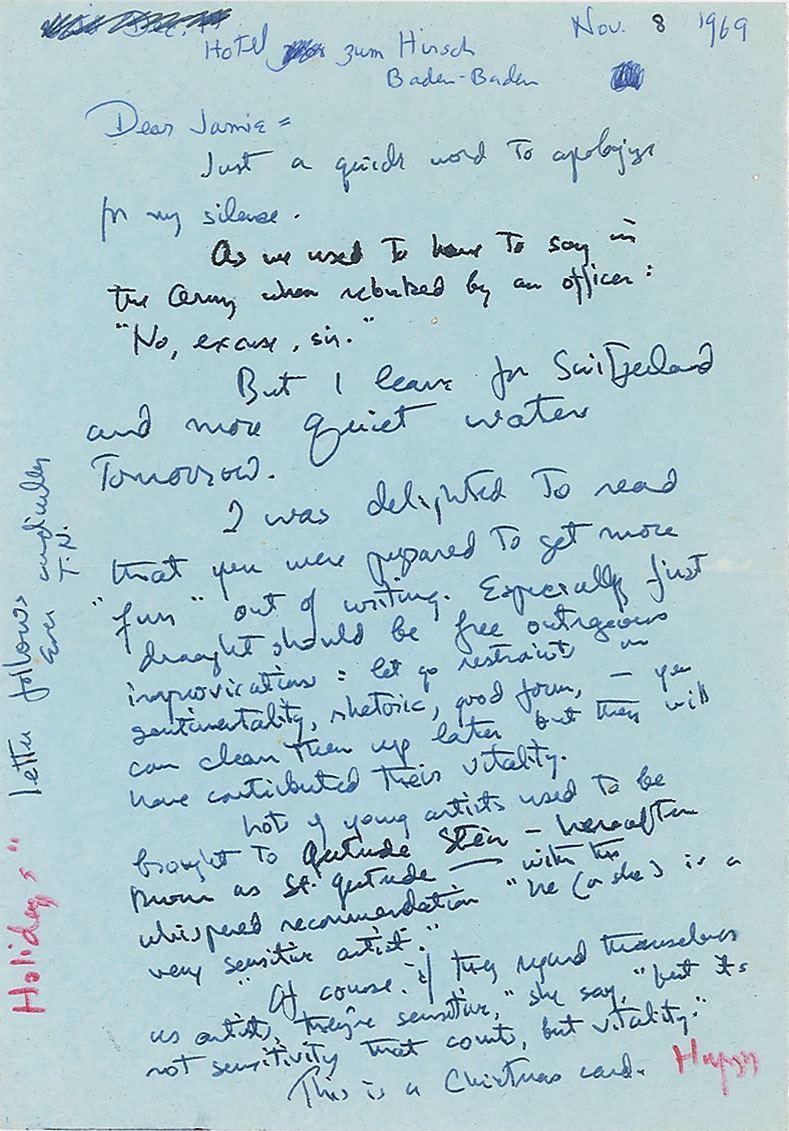 Nov. 8 1969
Hotel zum Hirsch
Baden-Baden
Dear Jamie =
Just a quick word to apologize
for my silence.
As we used to have to say in
the Army when rebuked by an officer:
"No, excuse, sir."
But I leave for Switzerland
and more quiet water
Tomorrow.
I was delighted to read
that you were prepared to get more
"fun" out of writing. Especially first
draught should be free outrageous
improvications: let go restraints in
sentimentality, rhetoric, good form, — you
can clean them up later but they will
have contributed their vitality.
Lots of young artists used to be
brought to Gertrude Stein — hereafter
known as St. Gertrude — with the
whispered recommendation "he (or she) is a
very "sensitive artist."
Of course. If they regard themselves
as artists, they're sensitive," she say, "but it's
not sensitivity that counts, but vitality."
This is a Christmas card. Happy
Holidays"
Letter follows
Ever cordially
T.N.